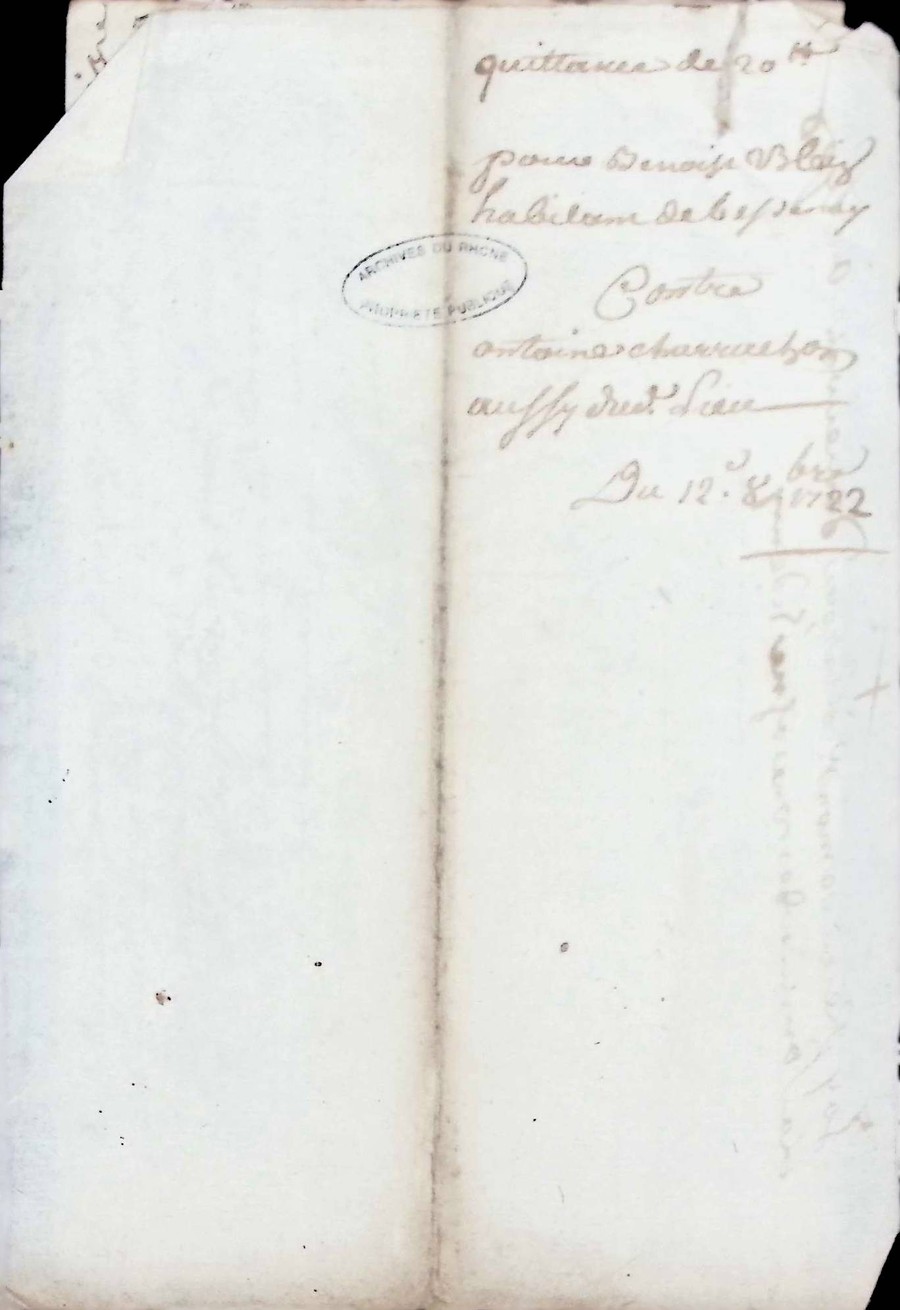 quittance de 20 ₶
pour Benoist Blay
habitant de bessenay
Contre
ARCHIVES DU RHONE
PROPRIETE PUBLIQUE
antoine charrachon
aussy dud. Lieu
Du 12.e 8bre 1722